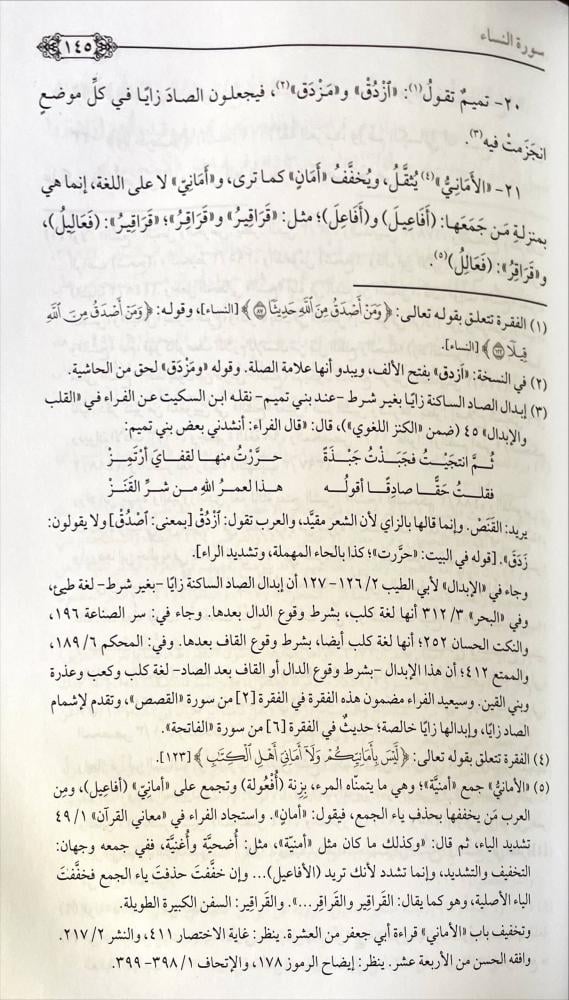 سورة النساء
١٤٥
٢٠- تميمٌ تقولُ(١): «اَزْدُقْ» و«مَزْدَق»(٢)، فيجعلون الصادَ زايًا في كلِّ موضعٍ
انجَزمتْ فيه(٣).
٢١- «الأَمَانِيُّ»(٤) يُثقَّلُ، ويُخفَّفُ «أَمَانٍ» كما ترى، و«أَمَانِيّ» لا على اللغة، إنما هي
بمنزلةِ مَن جَمَعَها: (أَفَاعِيلَ) و(أَفَاعِلَ)؛ مثل: «قَرَاقِيرُ» و«قَرَاقِر»؛ «قَرَاقِيرُ»: (فَعَالِيلُ)،
و«قَرَاقِرُ»: (فَعَالِلُ)(٥).
(١) الفقرة تتعلق بقوله تعالى: ﴿وَمَنْ أَصْدَقُ مِنَ ٱللَّهِ حَدِيثًا ۝٨٧﴾ [النساء]، وقوله: ﴿وَمَنْ أَصْدَقُ مِنَ ٱللَّهِ
قِيلًا ۝١٢٢﴾ [النساء].
(٢) في النسخة: «أزدق» بفتح الألف، ويبدو أنها علامة الصلة. وقوله «ومَزْدَق» لحق من الحاشية.
(٣) إبدال الصاد الساكنة زايًا بغير شرط -عند بني تميم- نقله ابن السكيت عن الفراء في «القلب
والإبدال» ٤٥ (ضمن «الكنز اللغوي»)، قال: «قال الفراء: أنشدني بعض بني تميم:
ثُمَّ انتجَيْتُ فجَبَذْتُ جَبْذَةً حرَّرْتُ منها لقفايَ أرْتَمِزْ
فقلتُ حَقًّا صادِقًا أقولُه هذا لعمرُ اللهِ من شرِّ القَنَزْ
يريد: القَنَصْ. وإنما قالها بالزاي لأن الشعر مقيَّد، والعرب تقول: ازْدُقْ [بمعنى: اصْدُقْ] ولا يقولون:
زَدَقَ». [قوله في البيت: «حرَّرت»؛ كذا بالحاء المهملة، وتشديد الراء].
وجاء في «الإبدال» لأبي الطيب ٢/ ١٢٦- ١٢٧ أن إبدال الصاد الساكنة زايًا -بغير شرط- لغة طيئ،
وفي «البحر» ٣/ ٣١٢ أنها لغة كلب، بشرط وقوع الدال بعدها. وجاء في: سر الصناعة ١٩٦،
والنكت الحسان ٢٥٢؛ أنها لغة كلب أيضا، بشرط وقوع القاف بعدها. وفي: المحكم ٦/ ١٨٩،
والممتع ٤١٢؛ أن هذا الإبدال -بشرط وقوع الدال أو القاف بعد الصاد- لغة كلب وكعب وعذرة
وبني القين. وسيعيد الفراء مضمون هذه الفقرة في الفقرة [٢] من سورة «القصص»، وتقدم لإشمام
الصاد زايًا، وإبدالها زايًا خالصة؛ حديثٌ في الفقرة [٦] من سورة «الفاتحة».
(٤) الفقرة تتعلق بقوله تعالى: ﴿لَيْسَ بِأَمَانِيِّكُمْ وَلَآ أَمَانِيِّ أَهْلِ ٱلْكِتَٰبِ﴾ [١٢٣].
(٥) «الأمانيُّ» جمع «أمنيَّة»؛ وهي ما يتمنّاه المرء، بِزِنة (أُفْعُولة) وتجمع على «أمانِيّ» (أفاعِيل)، ومِن
العرب مَن يخففها بحذفِ ياء الجمع، فيقول: «أمانٍ». واستجاد الفراء في «معاني القرآن» ١/ ٤٩
تشديد الياء، ثم قال: «وكذلك ما كان مثل «أمنيّة»، مثل: أُضحيَّة وأُغنيَّة، ففي جمعه وجهان:
التخفيف والتشديد، وإنما تشدد لأنك تريد (الأفاعيل)... وإن خفَّفتَ حذفتَ ياء الجمع فخفَّفتَ
الياء الأصلية، وهو كما يقال: القَراقِير والقَراقِر...». والقَراقِير: السفن الكبيرة الطويلة.
وتخفيف باب «الأماني» قراءة أبي جعفر من العشرة. ينظر: غاية الاختصار ٤١١، والنشر ٢/ ٢١٧.
وافقه الحسن من الأربعة عشر. ينظر: إيضاح الرموز ١٧٨، والإتحاف ١/ ٣٩٨- ٣٩٩.